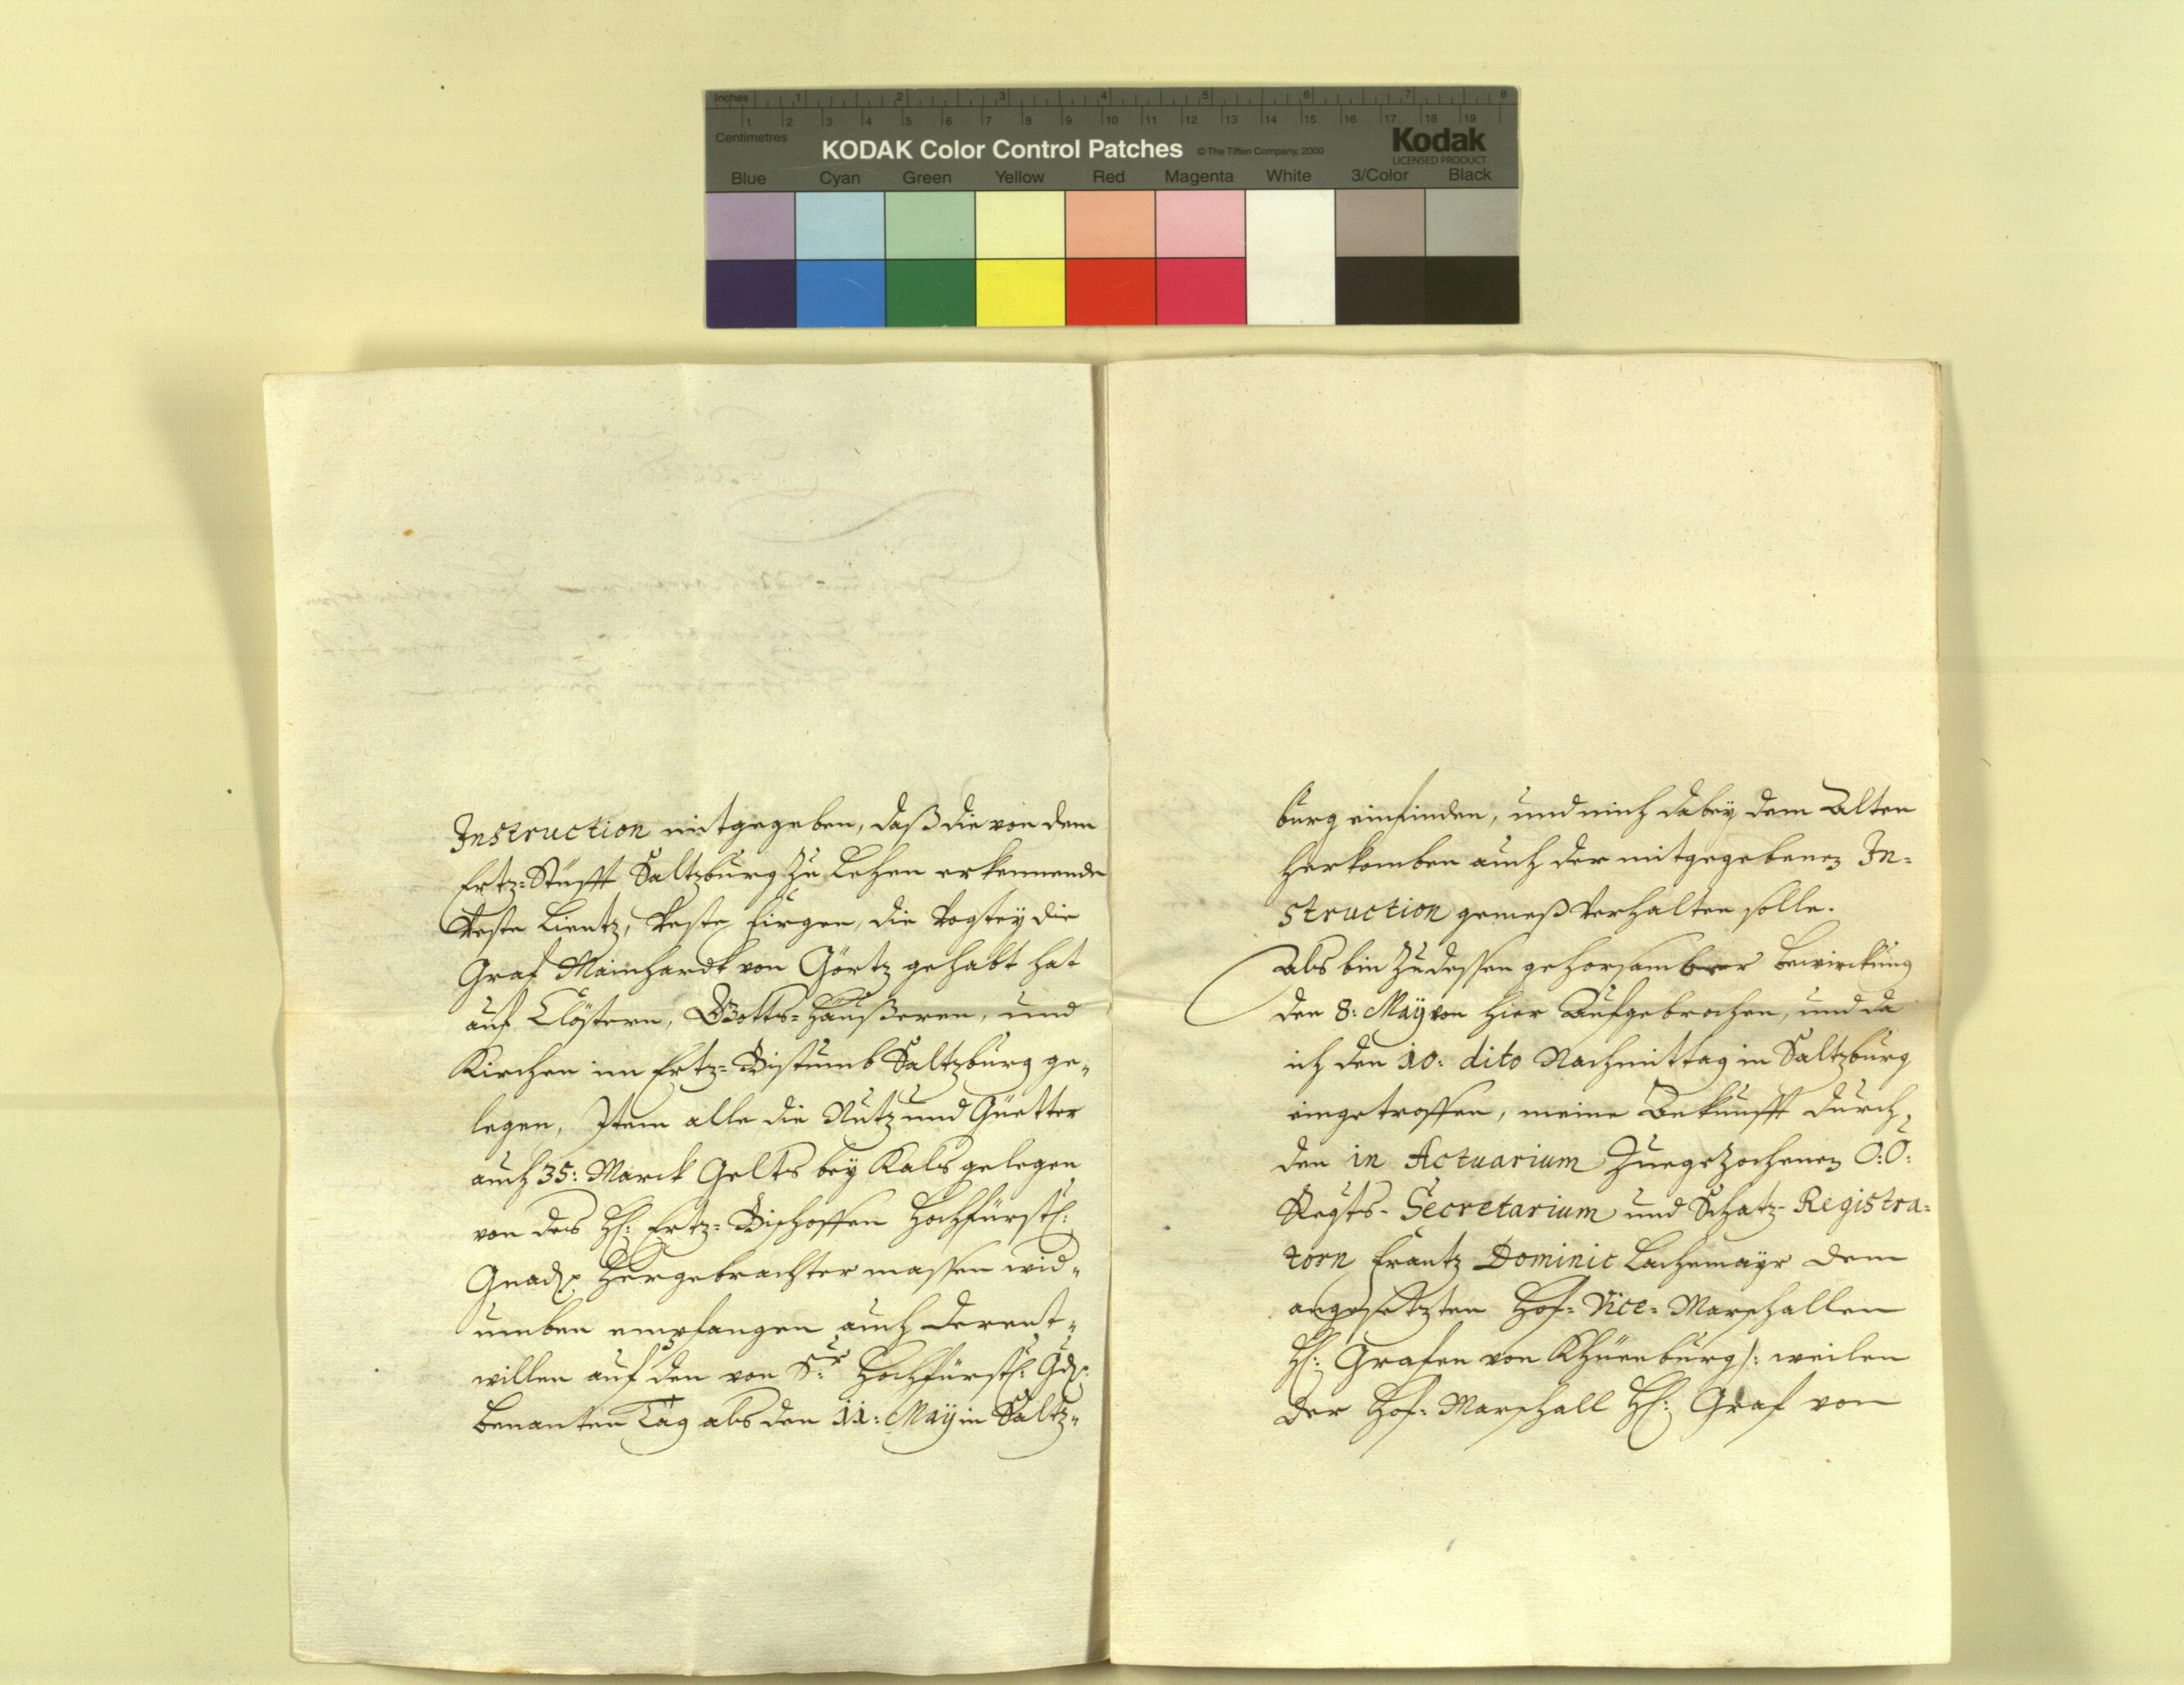 Inches 1 2 3 4 5 6 7 8
1 2 3 4 5 6 7 8 9 10 11 12 13 14 15 16 17 18 19
Centimetres
KODAK Color Control Patches © The Tiffen Company, 2000 Kodak
LICENSED PRODUCT
Blue Cyan Green Yellow Red Magenta White 3/Color Black
Instruction mitgegeben, daß die von dem
Ertz=Stüfft Saltzburg zu Lehen erkennende
Veste Lientz, Veste Firgen, die Vogteÿ die
Graf Mainhardt von Görtz gehabt hat
auf Clöstern, Gotts=Häußeren, und
Kirchen im Ertz=Bistumb Saltzburg ge„
legen, Item alle die Nutz und Güetter
auch 35: Marck Gelts beÿ Kals gelegen
von des H: Ertz=Bischoffen Hochfürstl:
Gnad: hergebrachter massen wid„
umben empfangen auch derent„
willen auf den von Sr: Hochfürstl: Gd:
benanten Tag als den 11: Maÿ in Saltz„
burg einfinden, und mich dabeÿ dem Alten
herkomben auch der mitgegebenen In=
struction gemeß verhalten solle.
Als bin zu dessen gehorsamber bewirckung
den 8: Maÿ von hier Aufgebrochen, und da
ich den 10: dito Nachmittag in Saltzburg
eingetroffen, meine Ankunfft durch
den in Actuarium zuegezochenen O:Ö:
Regts- Secretarium und Schatz- Registra=
torn Frantz Dominic Lachemaÿr dem
angesetzten Hof= Vice= Marschallen
H: Grafen von Khüenburg /: weilen
der Hof= Marschall H: Graf von